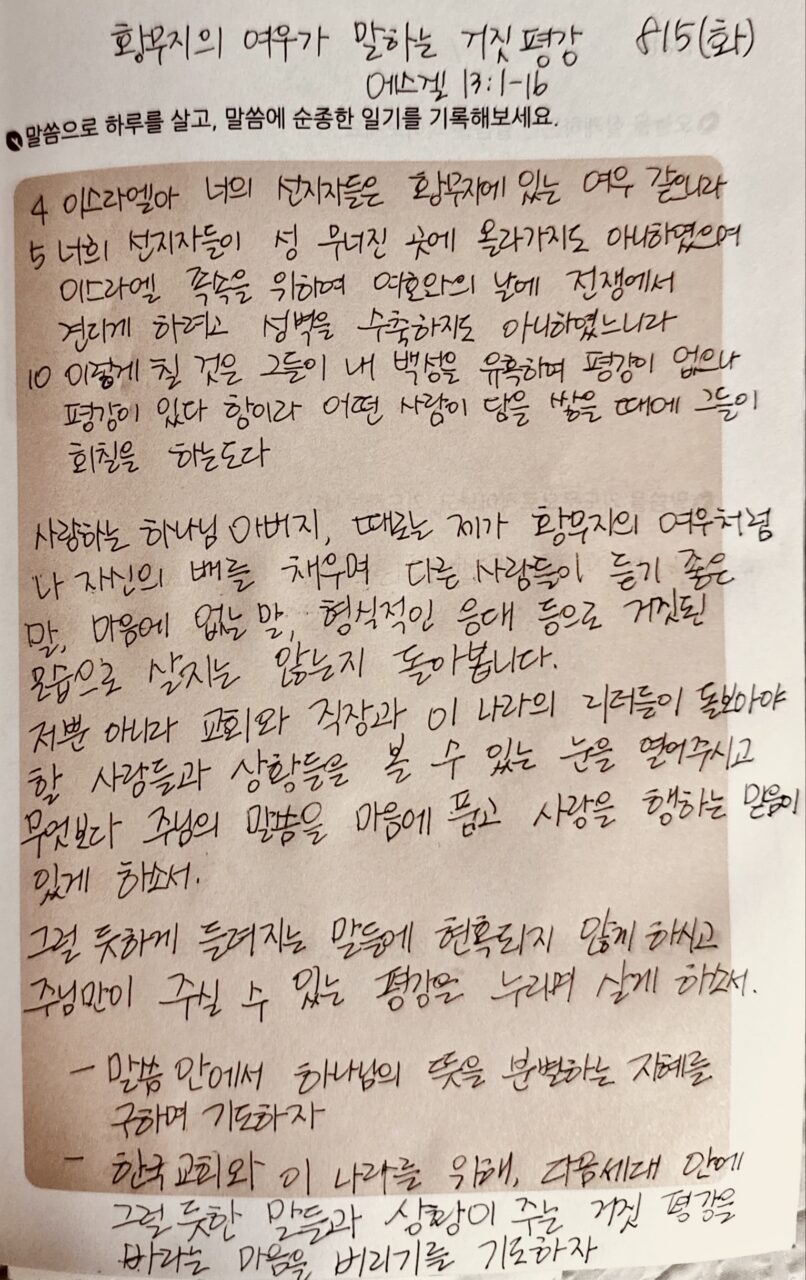 황무지의 여우가 말하는 거짓평강 8/5(화)
에스겔 13:1-16
말씀으로 하루를 살고, 말씀에 순종한 일기를 기록해보세요.
4 이스라엘아 너의 선지자들은 황무지에 있는 여우 같으니라
5 너희 선지자들이 성 무너진 곳에 올라가지도 아니하였으며
이스라엘 족속을 위하여 여호와의 날에 전쟁에서
견디게 하려고 성벽을 수축하지도 아니하였느니라
10 이렇게 칠 것은 그들이 내 백성을 유혹하여 평강이 없으나
평강이 있다 함이라 어떤 사람이 담을 쌓을 때에 그들이
회칠을 하는도다
사랑하는 하나님 아버지, 때로는 제가 황무지의 여우처럼
나 자신의 배를 채우며 다른 사람들이 듣기 좋은
말, 마음에 없는 말, 형식적인 응대 등으로 거짓된
모습으로 살지는 않는지 돌아봅니다.
저뿐 아니라 교회와 직장과 이 나라의 리더들이 돌보아야
할 사람들과 상황들을 볼 수 있는 눈을 열어주시고
무엇보다 주님의 말씀을 마음에 품고 사랑을 행하는 믿음이
있게 하소서.
그럴 듯하게 들려지는 말들에 현혹되지 않게 하시고
주님만이 주실 수 있는 평강을 누리며 살게 하소서.
- 말씀 안에서 하나님의 뜻을 분별하는 지혜를
구하며 기도하자
- 한국교회와 이 나라를 위해, 다음세대 안에
그럴 듯한 말들과 상황이 주는 거짓 평강을
바라는 마음을 버리기를 기도하자